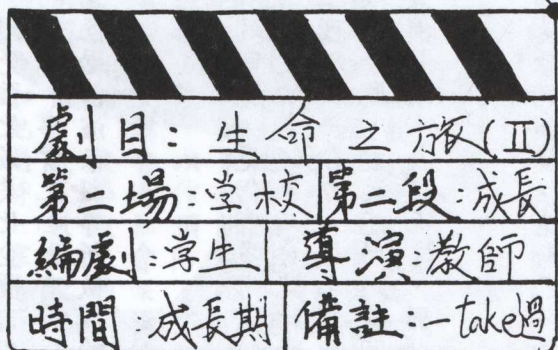 劇目：生命之旅(II)
第二場：学校 第二段：成長
編劇：学生 導演：教師
時間：成長期 備註：一take過